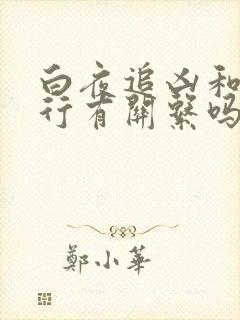 白夜追凶和
行有關繫吗
鄭小華